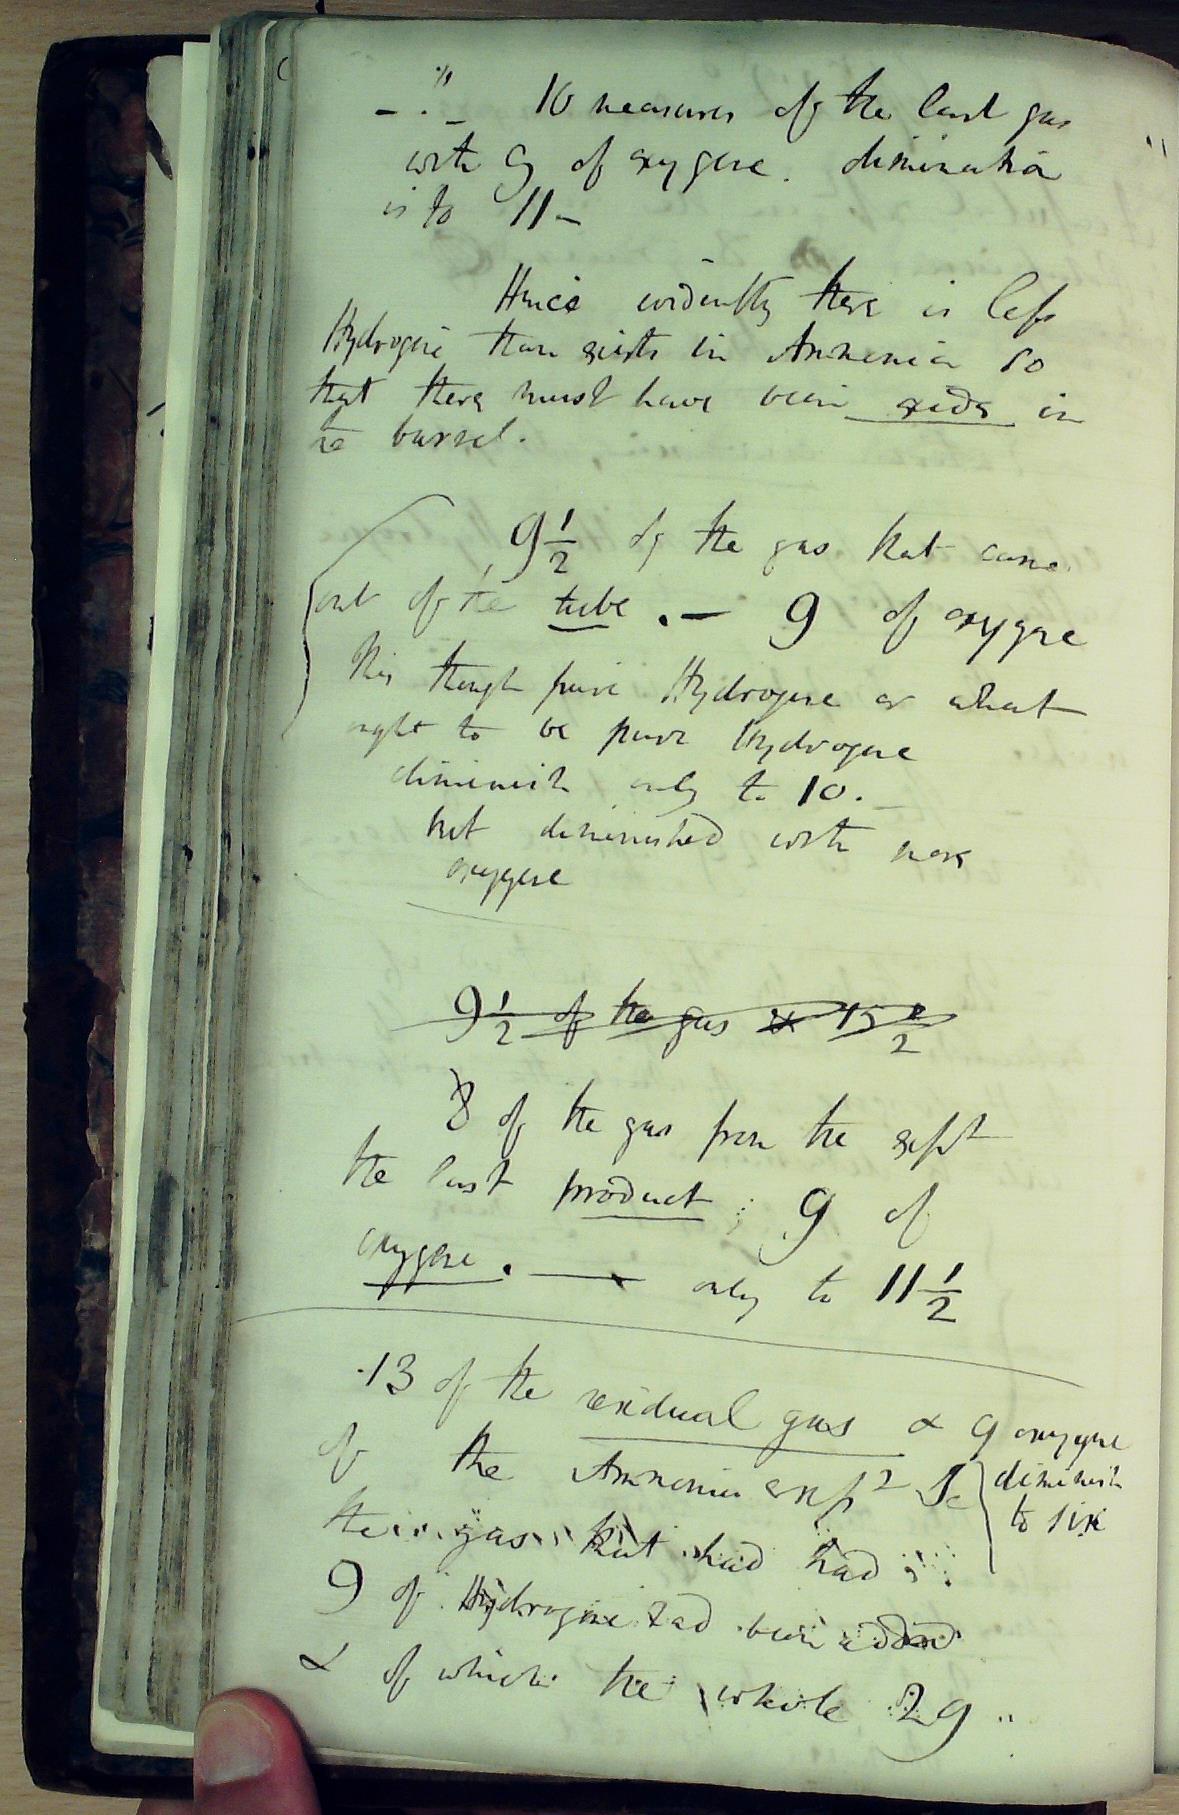 10 measures of the last gas
with 9 of oxygene. diminution
is to 11 –
Hence evidently there is less
Hydrogene than exists in Ammonia so
that there must have been oxide in
the barrel.
9 1/2 of the gas that came
out of the tube . – 9 of oxygene
this though pure Hydrogene or what
ought to be pure hydrogene
diminish only to 10. –
but diminished with more
oxygene
9 1/2 of the gas & 15 1/2
8 of the gas from the expt
the last product ; 9 of
oxygene. — only to 11 1/2
13 of the residual gas & 9 oxygene
of the Ammonia exp
diminish
to six
the gas that had had
9 of Hydrogene had been added
& of which the whole 29